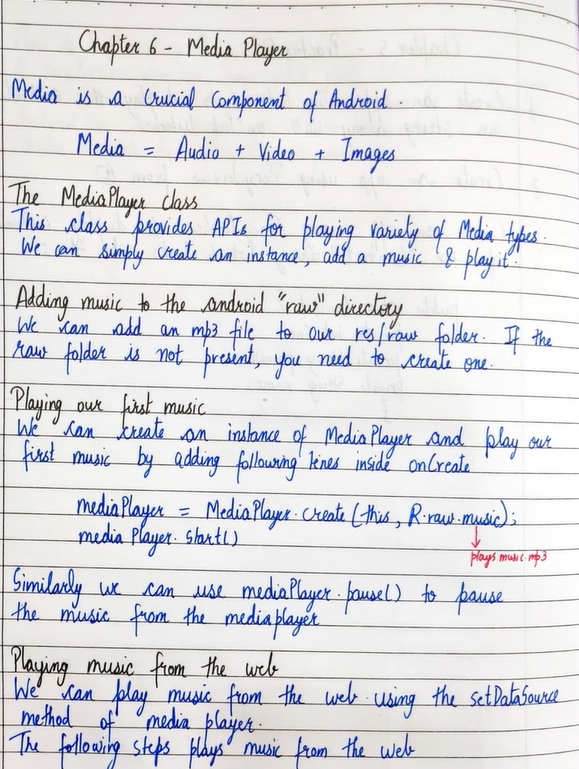 Chapter 6 - Media Player
Media is a Crucial Component of Android.
Media = Audio + Video + Images
The MediaPlayer class
This class provides APIs for playing variety of Media types.
We can simply create an instance, add a music & play it.
Adding music to the android "raw" directory
We can add an mp3 file to our res/raw folder. If the
raw folder is not present, you need to create one.
Playing our first music
We can create an instance of MediaPlayer and play our
first music by adding following lines inside onCreate
mediaPlayer = MediaPlayer.create(this, R.raw.music);
mediaPlayer.start()
plays music.mp3
Similarly we can use mediaPlayer.pause() to pause
the music from the mediaplayer
Playing music from the web
We can play music from the web using the setDataSource
method of media player.
The following steps plays music from the web